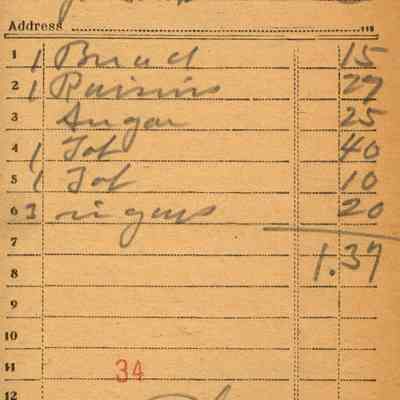 Address
1 1 Bread 15
2 1 Raisins 27
3 Sugar 25
4 1 Tob 40
5 1 Tob 10
6 3 20
7
1.37
8
9
10
11 34
12